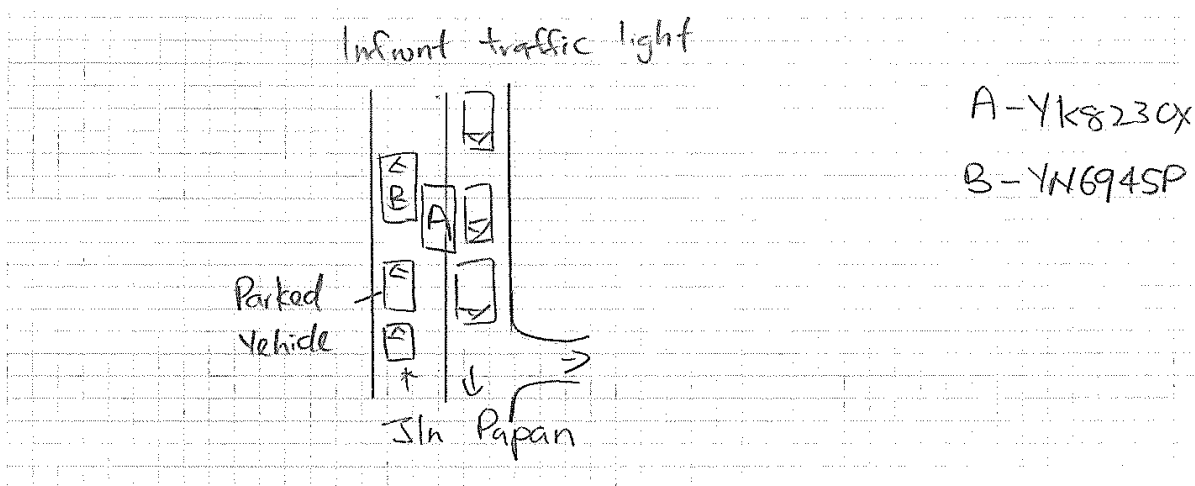 Infront traffic light
A - YK8230X
B - YN6945P
B
A
Parked
Vehicle
Jln Papan